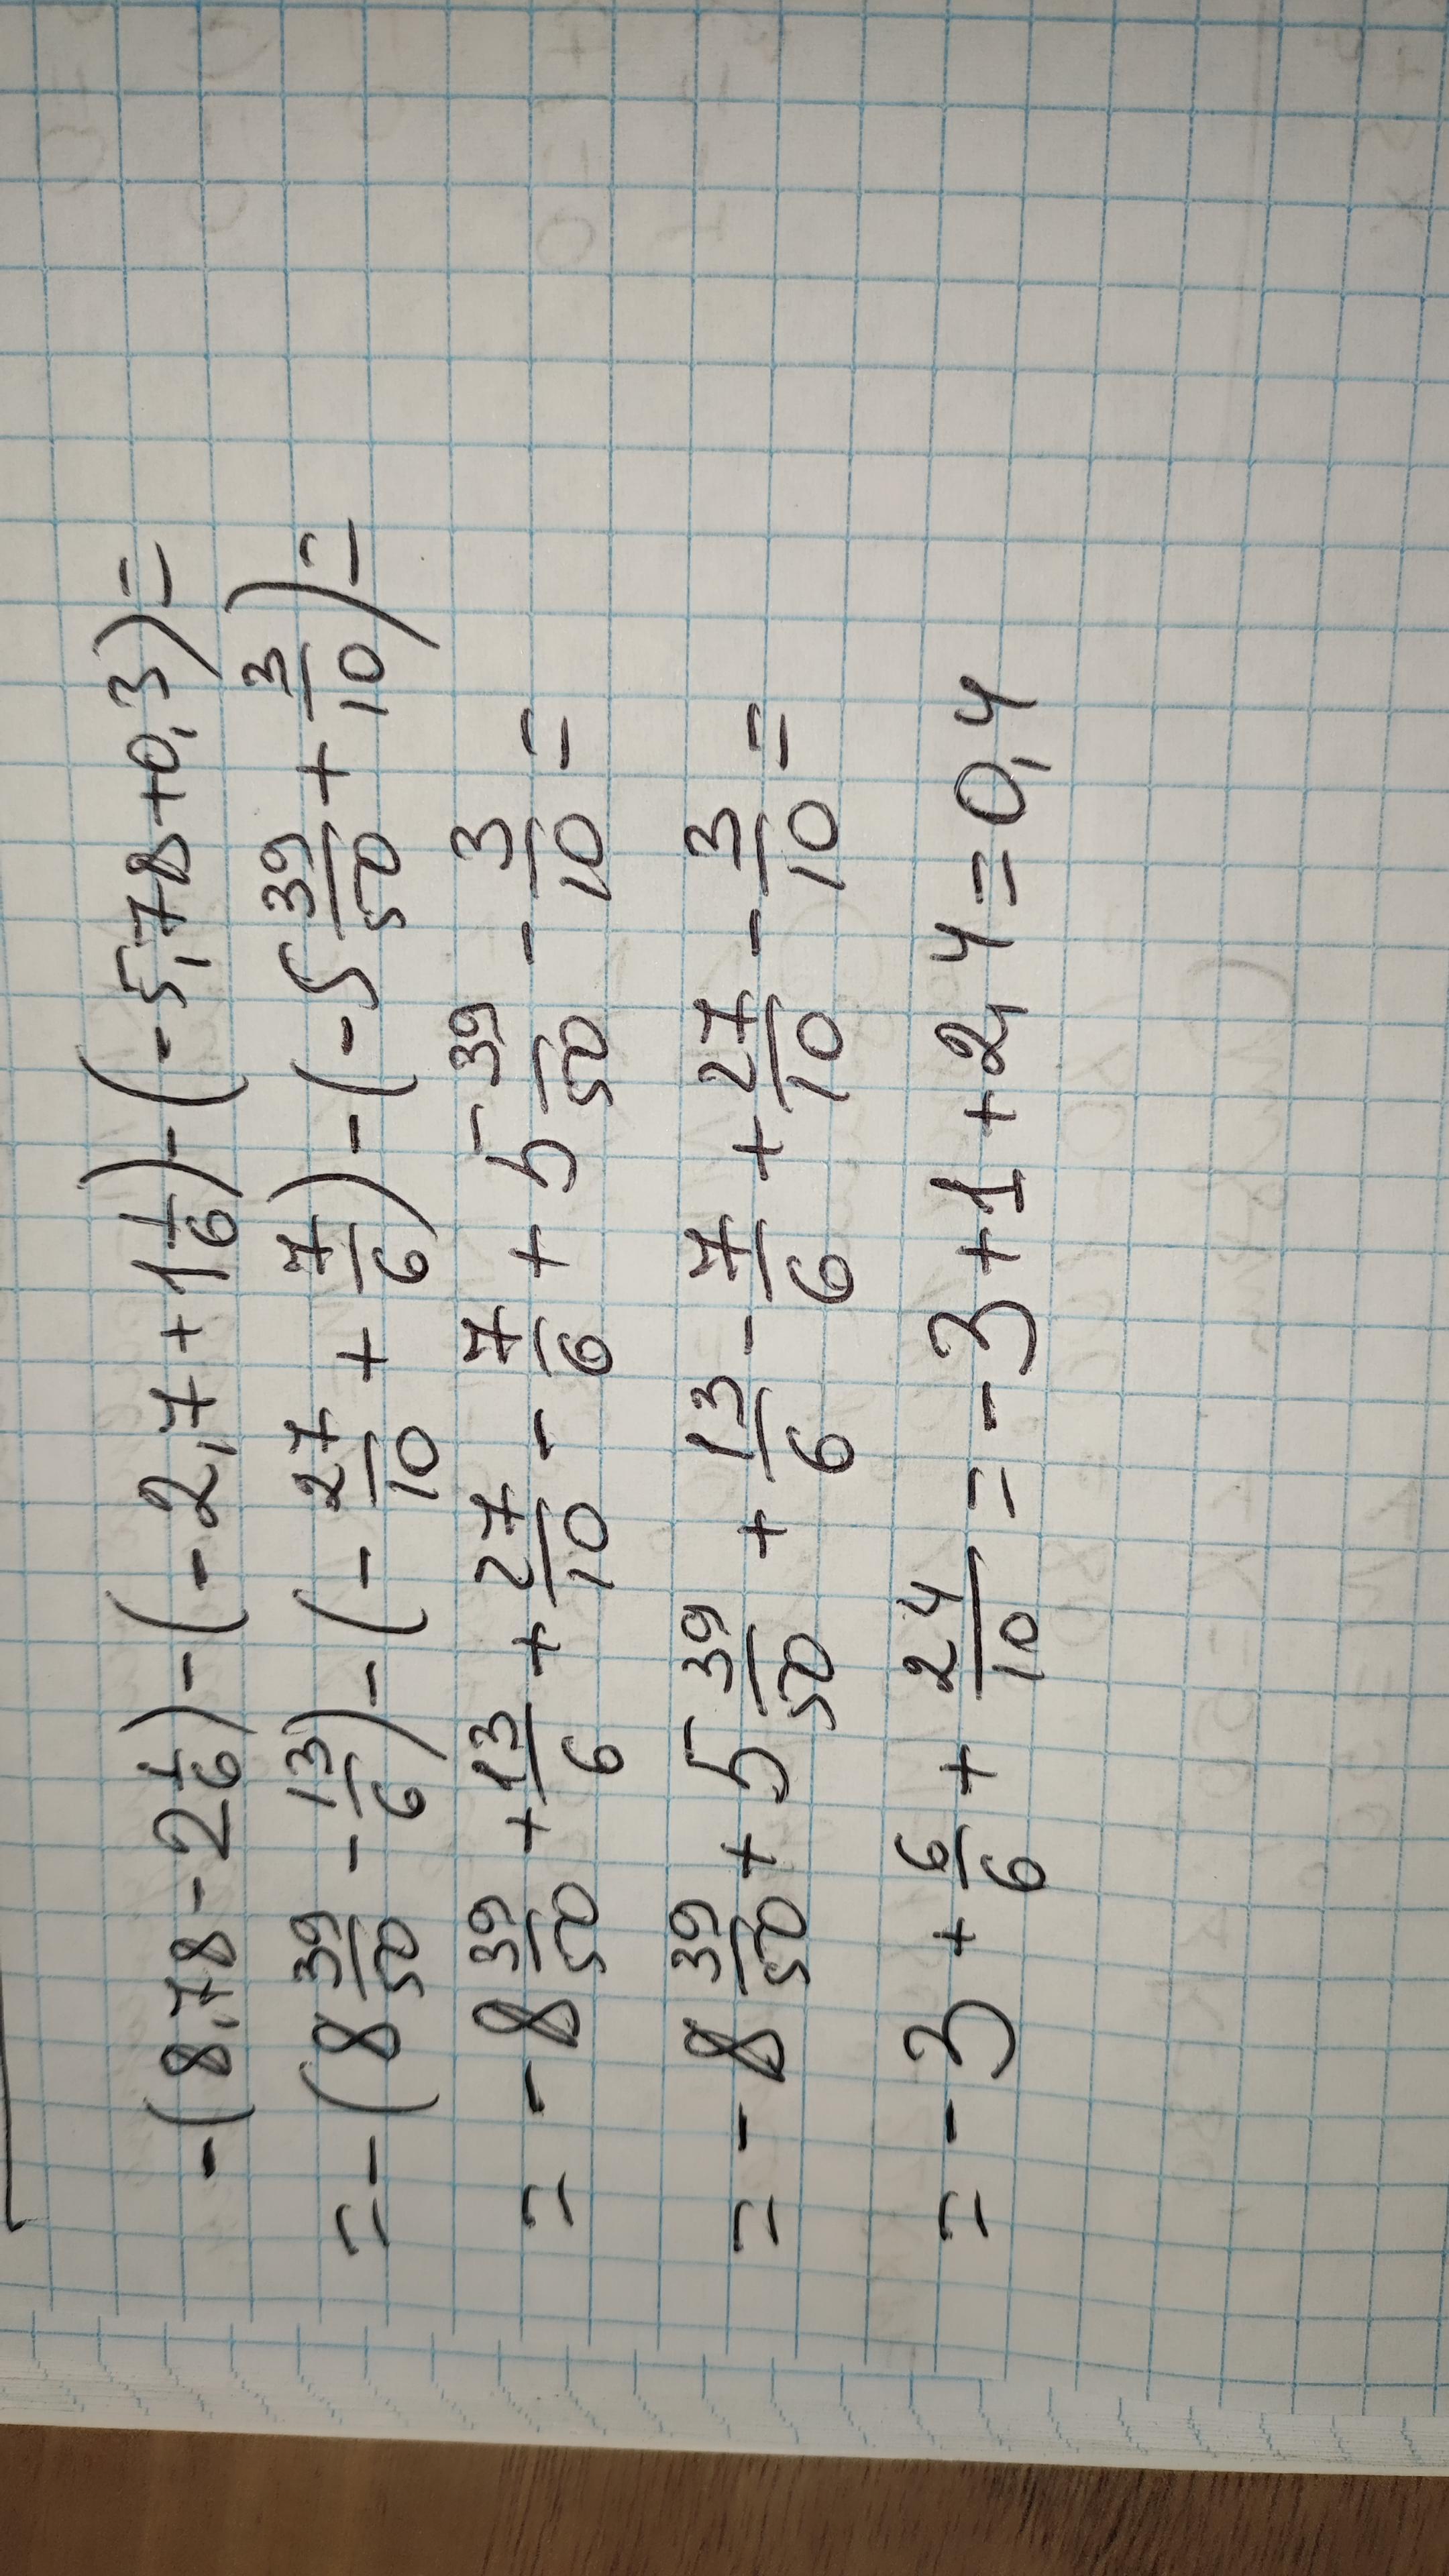 -(8,78-2 1/6)-(-2,7+1 1/6)-(-5,78+0,3)=
=-(8 39/50 - 13/6)-(- 27/10 + 7/6)-(-5 39/50 + 3/10)=
= -8 39/50 + 13/6 + 27/10 - 7/6 + 5 39/50 - 3/10 =
= -8 39/50 + 5 39/50 + 13/6 - 7/6 + 27/10 - 3/10 =
= -3 + 6/6 + 24/10 = -3+1+2,4=0,4